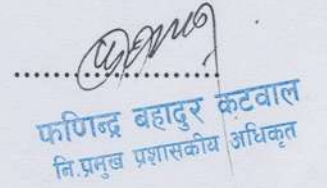 फणिन्द्र बहादुर कटवाल
नि.प्रमुख प्रशासकीय अधिकृत